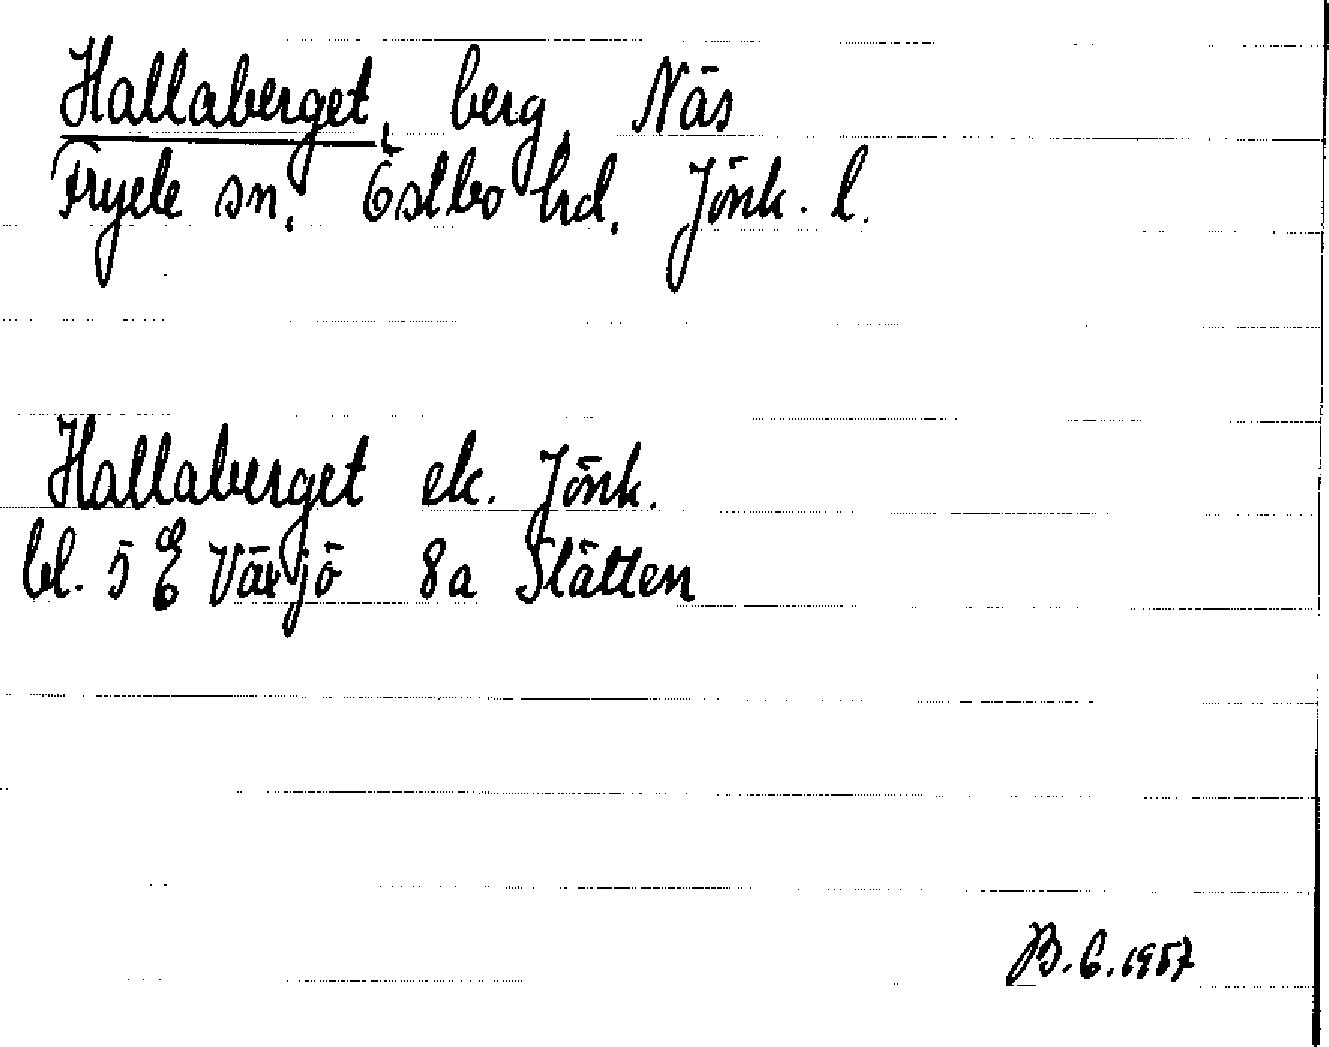 Hallaberget, berg, Näs
Fryele sn. Östbo hd. Jönk. l.
Hallaberget ek. Jönk.
bl. 5 E Växjö 8a Slätten
B.E. 1957